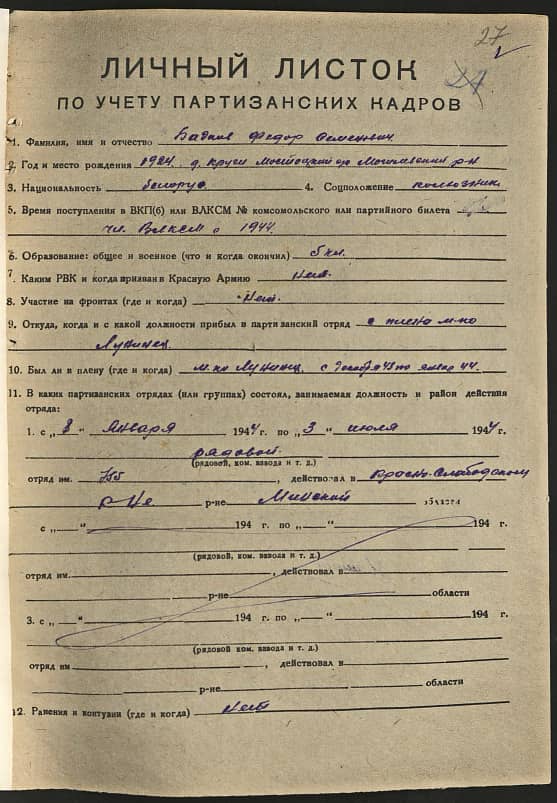 27
27
ЛИЧНЫЙ ЛИСТОК
ПО УЧЕТУ ПАРТИЗАНСКИХ КАДРОВ
1. Фамилия, имя и отчество Федор Семенович
2. Год и место рождения 1924 д. Круги
3. Национальность белорус 4. Соцположение колхозник
5. Время поступления в ВКП(б) или ВЛКСМ № комсомольского или партийного билета
чл. ВЛКСМ с 1944.
6. Образование: общее и военное (что и когда окончил) 5 кл.
7. Каким РВК и когда призван в Красную Армию Нет.
8. Участие на фронтах (где и когда) Нет.
9. Откуда, когда и с какой должности прибыл в партизанский отряд с плена м-ко
Лунинец
10. Был ли в плену (где и когда) м-ко Лунинец с декабря 43 по январь 44.
11. В каких партизанских отрядах (или группах) состоял, занимаемая должность и район действия
отряда:
1. с „ 8 “ января 1944 г. по „ 3 “ июля 1944 г.
рядовой
(рядовой, ком. взвода и т. д.)
отряд им. , действовал в Красно-Слободском
р-не р-не Минской области
с „ “ 194 г. по „ “ 194 г.
(рядовой, ком. взвода и т. д.)
отряд им. , действовал в
р-не области
3. с „ “ 194 г. по „ “ 194 г.
(рядовой, ком. взвода и т. д.)
отряд им , действовал в
р-не области
12. Ранения и контузии (где и когда) Нет